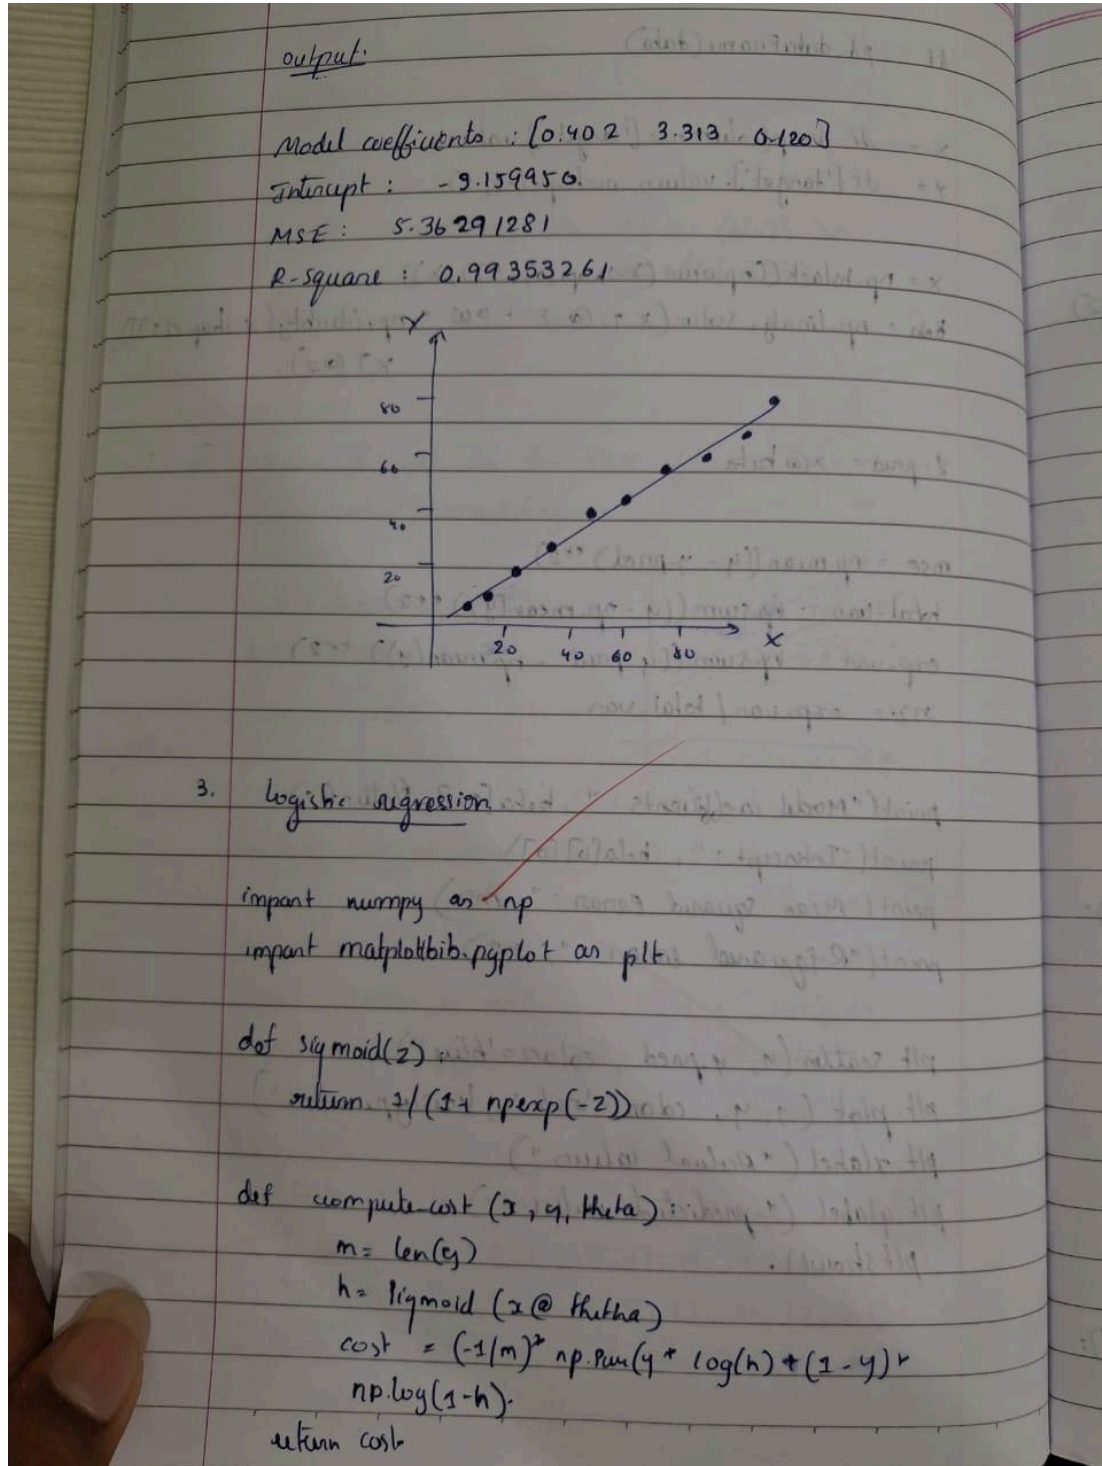 output:
Model coefficients : [0.402 3.313 0.120]
Intercept : -9.159950.
MSE : 5.36291281
R-square : 0.99353261
Y
80
60
40
20
20 40 60 80 X
3. Logistic regression
import numpy as np
import matplotlib.pyplot as plt
def sigmoid(z):
return 1/(1+ npexp(-z))
def compute-cost (x, y, theta):
m= len(y)
h= sigmoid (x@ thetha)
cost = (-1/m)* np.sum(y* log(h) + (1-y)*
np.log(1-h).
return cost